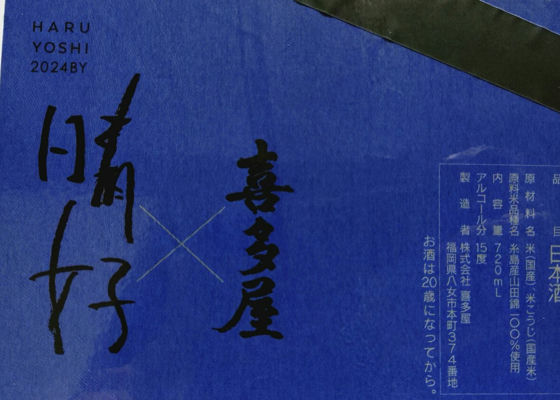 HARU
YOSHI
2024BY
晴好
×
喜多屋
品目 日本酒
原材料名 米(国産)、米こうじ(国産米)
原料米品種名 糸島産山田錦一〇〇%使用
内容量 720mL
アルコール分 15度
製造者 株式会社 喜多屋
福岡県八女市本町374番地
お酒は20歳になってから。